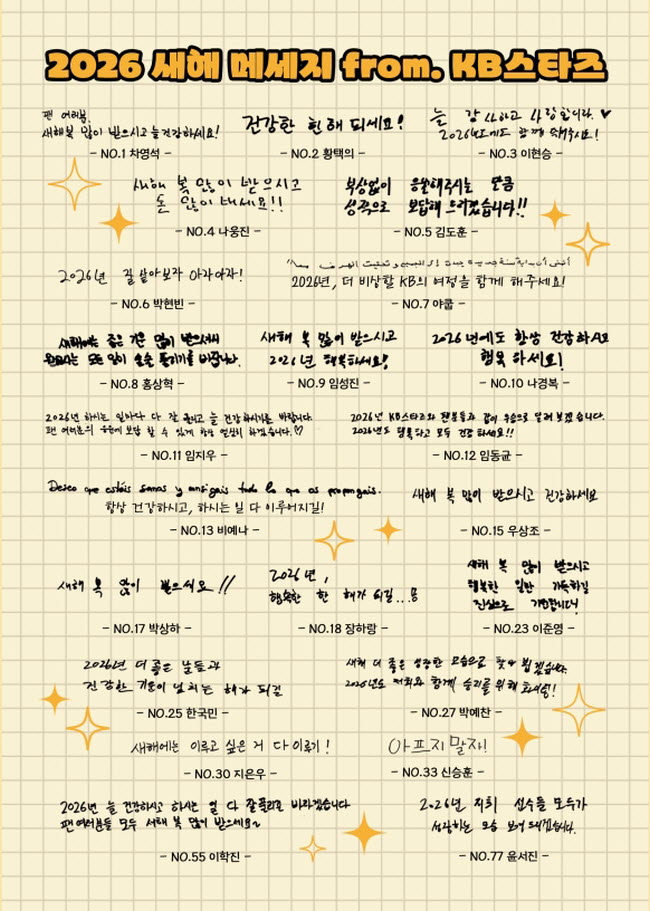 2026 새해 메세지 from. KB스타즈
팬 여러분,
새해복 많이 받으시고 늘 건강하세요!
- NO.1 차영석 -
건강한 한해 되세요!
- NO.2 황택의 -
늘 감사하고 사랑합니다. ♥
2026년도에도 함께 해주세요!
- NO.3 이현승 -
새해 복 많이 받으시고
돈 많이 버세요!!
- NO.4 나웅진 -
부상없이 응원해주시는 만큼
성적으로 보답해 드리겠습니다!!
- NO.5 김도훈 -
2026년 잘 살아보자 아자아자!
- NO.6 박현빈 -
2026년, 더 비상할 KB의 여정을 함께 해주세요!
- NO.7 야쿱 -
새해에는 좋은 기운 많이 받으셔서
원하시는 모든 일이 술술 풀리기를 바랍니다.
- NO.8 홍상혁 -
새해 복 많이 받으시고
2026년 행복하세요!
- NO.9 임성진 -
2026년에도 항상 건강하시고
행복 하세요!
- NO.10 나경복 -
2026년 하시는 일마다 다 잘 풀리고 늘 건강하시기를 바랍니다.
팬 여러분의 응원에 보답 할 수 있게 항상 열심히 하겠습니다.♡
- NO.11 임지우 -
2026년 KB스타즈와 팬분들과 같이 우승으로 달려 보겠습니다.
2026년도 행복하고 모두 건강하세요!!
- NO.12 임동균 -
Deseo que estéis sanos y consigais todo lo que os propongais.
항상 건강하시고, 하시는 일 다 이루어지길!
- NO.13 비예나 -
새해 복 많이 받으시고 건강하세요
- NO.15 우상조 -
새해 복 많이 받으세요 !!
- NO.17 박상하 -
2026년,
행복한 한 해가 되길...
- NO.18 장하랑 -
새해 복 많이 받으시고
행복한 일만 가득하길
진심으로 기원합니다!
- NO.23 이준영 -
2026년 더 좋은 날들과
건강한 기운이 넘치는 해가 되길
- NO.25 한국민 -
새해 더 좋은 성장한 모습으로 찾아 뵙겠습니다.
2026년도 저희와 함께 승리를 위해 화이팅!
- NO.27 박예찬 -
새해에는 이루고 싶은 거 다 이루기!
- NO.30 지은우 -
아프지 말자!
- NO.33 신승훈 -
2026년 늘 건강하시고 하시는 일 다 잘풀리길 바라겠습니다
팬여러분들 모두 새해 복 많이 받으세요~
- NO.55 이학진 -
2026년 저희 선수들 모두가
성장하는 모습 보여드리겠습니다.
- NO.77 윤서진 -